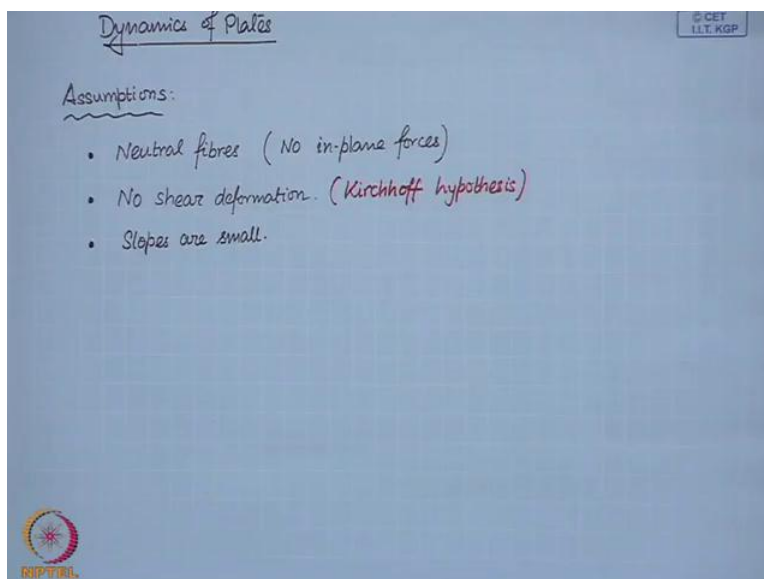 Dynamics of Plates
© CET
I.I.T. KGP
Assumptions:
• Neutral fibres (No in-plane forces)
• No shear deformation. (Kirchhoff hypothesis)
• Slopes are small.
NPTEL